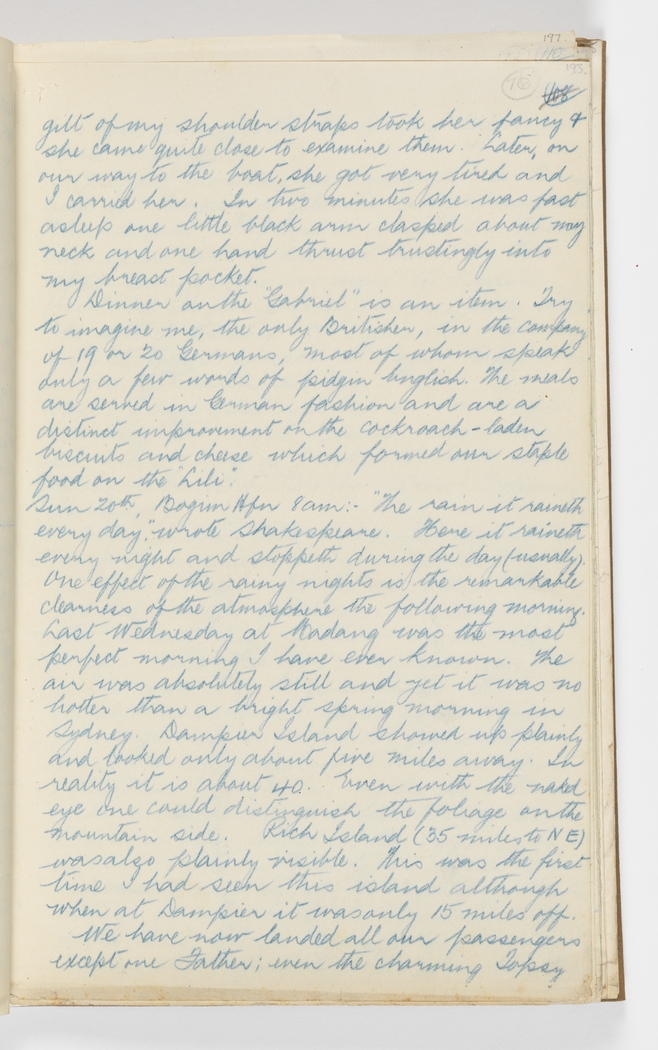 197.
193.
76
108
gilt of my shoulder straps took her fancy &
she came quite close to examine them. Later, on
our way to the boat, she got very tired and
I carried her. In two minutes she was fast
asleep one little black arm clasped about my
neck and one hand thrust trustingly into
my breast pocket.
Dinner on the "Gabriel" is an item. Try
to imagine me, the only Britisher, in the company
of 19 or 20 Germans, most of whom speak
only a few words of pidgin English. The meals
are served in German fashion and are a
distinct improvement on the cockroach-laden
biscuits and cheese which formed our staple
food on the "Lili".
Sun 20th, Bogim Hfn 8am:- "The rain it raineth
every day", wrote Shakespeare. Here it raineth
every night and stoppeth during the day (usually).
One effect of the rainy nights is the remarkable
clearness of the atmosphere the following morning.
Last Wednesday at Madang was the most
perfect morning I have ever known. The
air was absolutely still and yet it was no
hotter than a bright spring morning in
Sydney. Dampier Island showed up plainly
and looked only about five miles away. In
reality it is about 40. Even with the naked
eye one could distinguish the foliage on the
mountain side. Rich Island (35 miles to NE)
was also plainly visible. This was the first
time I had seen this island although
when at Dampier it was only 15 miles off.
We have now landed all our passengers
except one Father; even the charming Topsy